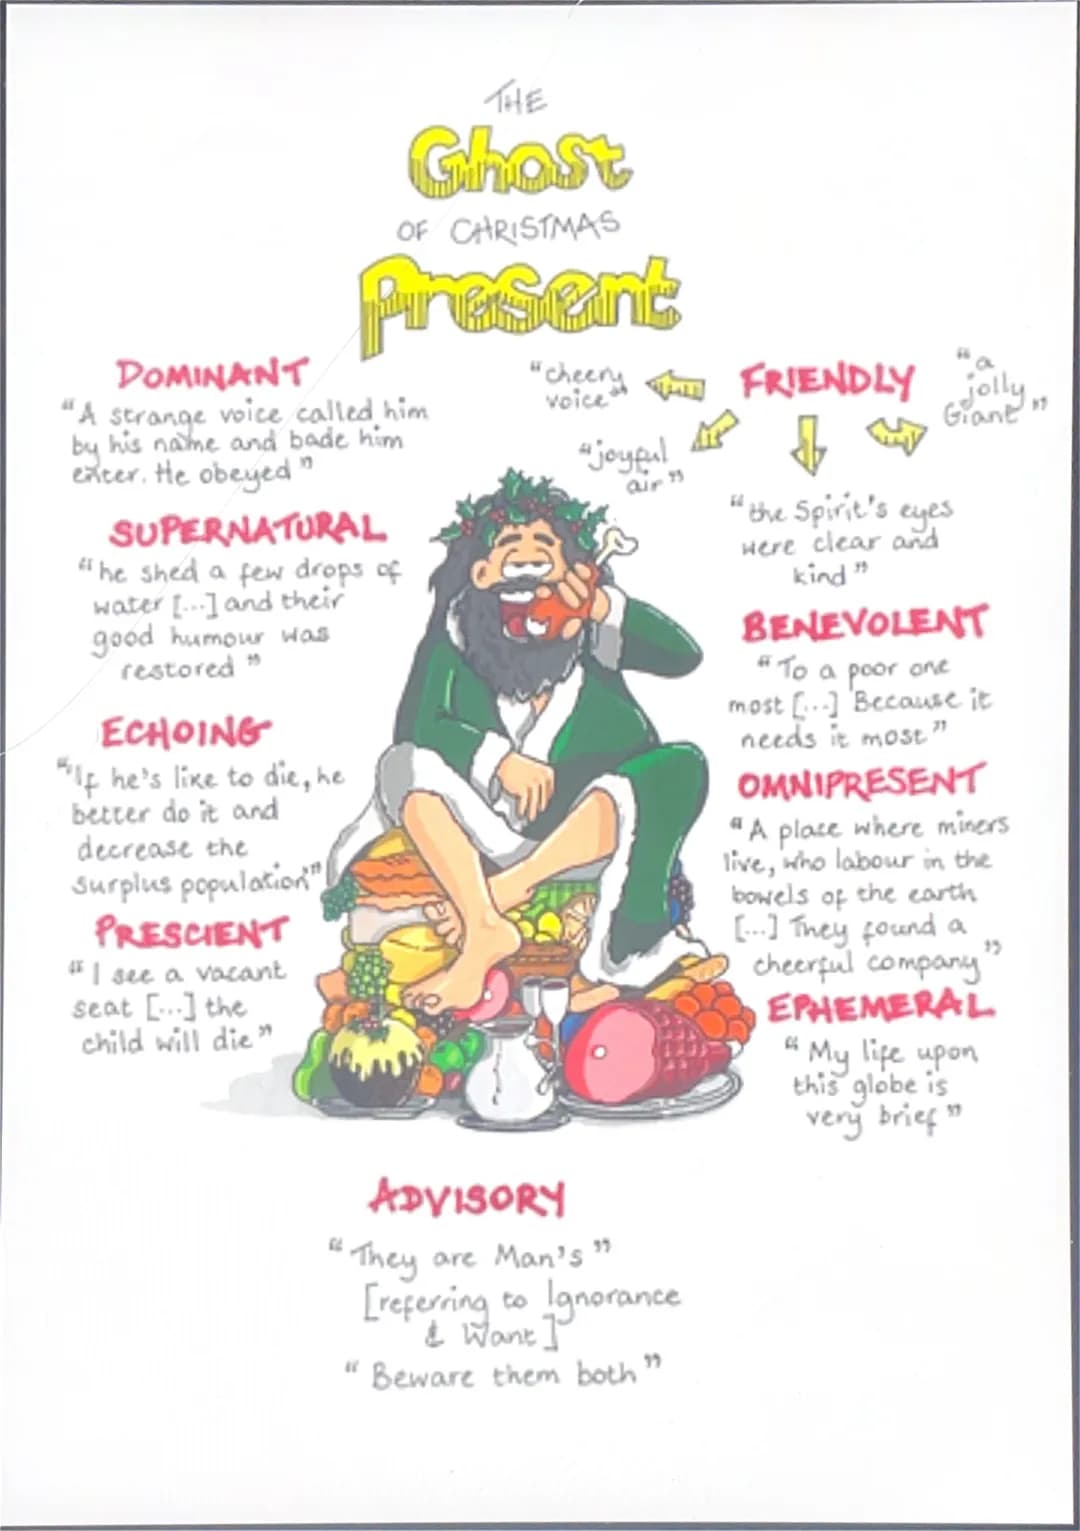 THE
Ghost
OF CHRISTMAS
Present
DOMINANT
"A strange voice called him
by his name and bade him
enter. He obeyed"
SUPERNATURAL
"he shed a few drops of
water [...] and their
good humour was
restored"
ECHOING
"'If he's like to die, he
better do it and
decrease the
surplus population'"
PRESCIENT
"I see a vacant
seat [...] the
child will die"
FRIENDLY
"cheery
voice"
"joyful
air"
"a
jolly
Giant"
"the Spirit's eyes
were clear and
kind"
BENEVOLENT
"To a poor one
most [...] Because it
needs it most"
OMNIPRESENT
"A place where miners
live, who labour in the
bowels of the earth
[...] They found a
cheerful company"
EPHEMERAL
"My life upon
this globe is
very brief"
ADVISORY
"They are Man's"
[referring to Ignorance
& Want]
"Beware them both"